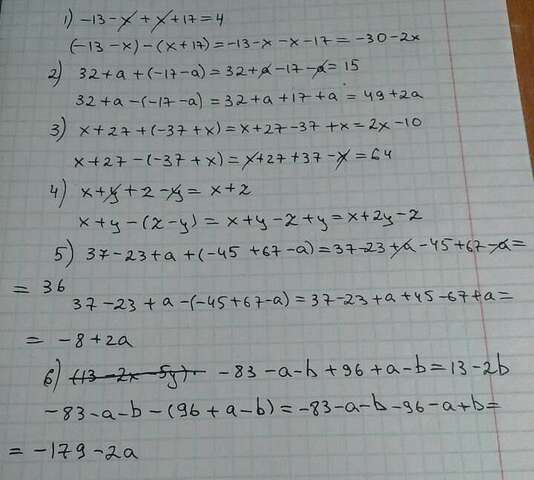 1) -13-x+x+17=4
(-13-x)-(x+17)=-13-x-x-17=-30-2x
2) 32+a+(-17-a)=32+a-17-a=15
32+a-(-17-a)=32+a+17+a=49+2a
3) x+27+(-37+x)=x+27-37+x=2x-10
x+27-(-37+x)=x+27+37-x=64
4) x+y+z-y=x+z
x+y-(z-y)=x+y-z+y=x+2y-z
5) 37-23+a+(-45+67-a)=37-23+a-45+67-a=
=36
37-23+a-(-45+67-a)=37-23+a+45-67+a=
=-8+2a
6) (13-2x-5y). -83-a-b+96+a-b=13-2b
-83-a-b-(96+a-b)=-83-a-b-96-a+b=
=-179-2a